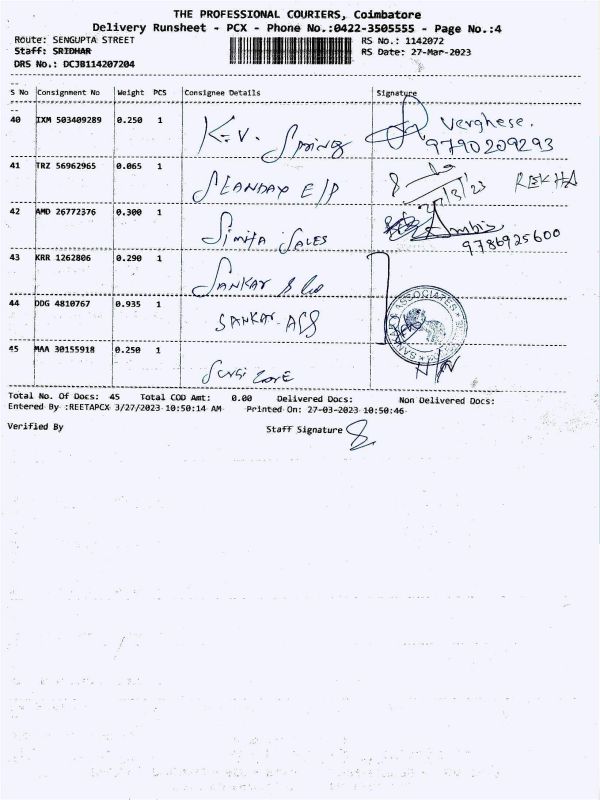 THE PROFESSIONAL COURIERS, Coimbatore
Delivery Runsheet - PCX - Phone No.:0422-3505555 - Page No.:4
Route: SENGUPTA STREET
RS No.: 1142072
Staff: SRIDHAR
RS Date: 27-Mar-2023
DRS No.: DCJB114207204
S No Consignment No Weight PCS Consignee Details Signature
40 IXM 503409289 0.250 1 K.V. Spring Verghese.
9790209293
41 TRZ 56962965 0.065 1 REKHA
27/3/23
42 AMD 26772376 0.300 1 Simita Sales
9786925600
43 KRR 1262806 0.290 1 Sankar
44 DDG 4810767 0.935 1 SANKAR ASS
45 MAA 30155918 0.250 1
Total No. Of Docs: 45 Total COD Amt: 0.00 Delivered Docs: Non Delivered Docs:
Entered By :REETAPCX 3/27/2023 10:50:14 AM Printed On: 27-03-2023 10:50:46
Verified By
Staff Signature